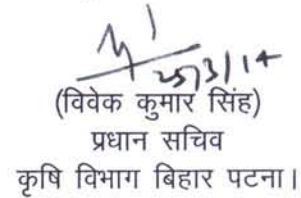 25/3/14
(विवेक कुमार सिंह)
प्रधान सचिव
कृषि विभाग बिहार पटना।